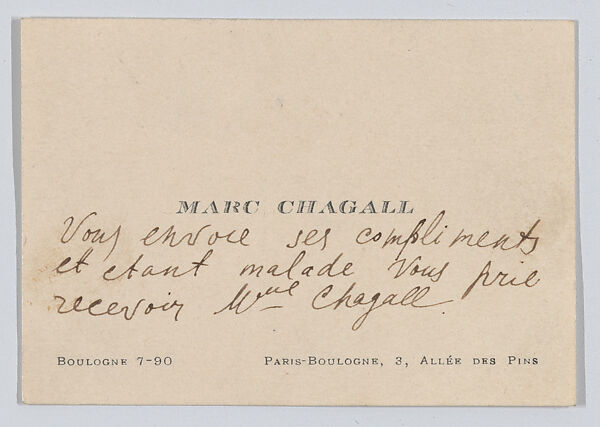 MARC CHAGALL
Vous envoie ses compliments
et etant malade Vous prie
recevoir Mme Chagall.
BOULOGNE 7-90 PARIS-BOULOGNE, 3, ALLÉE DES PINS